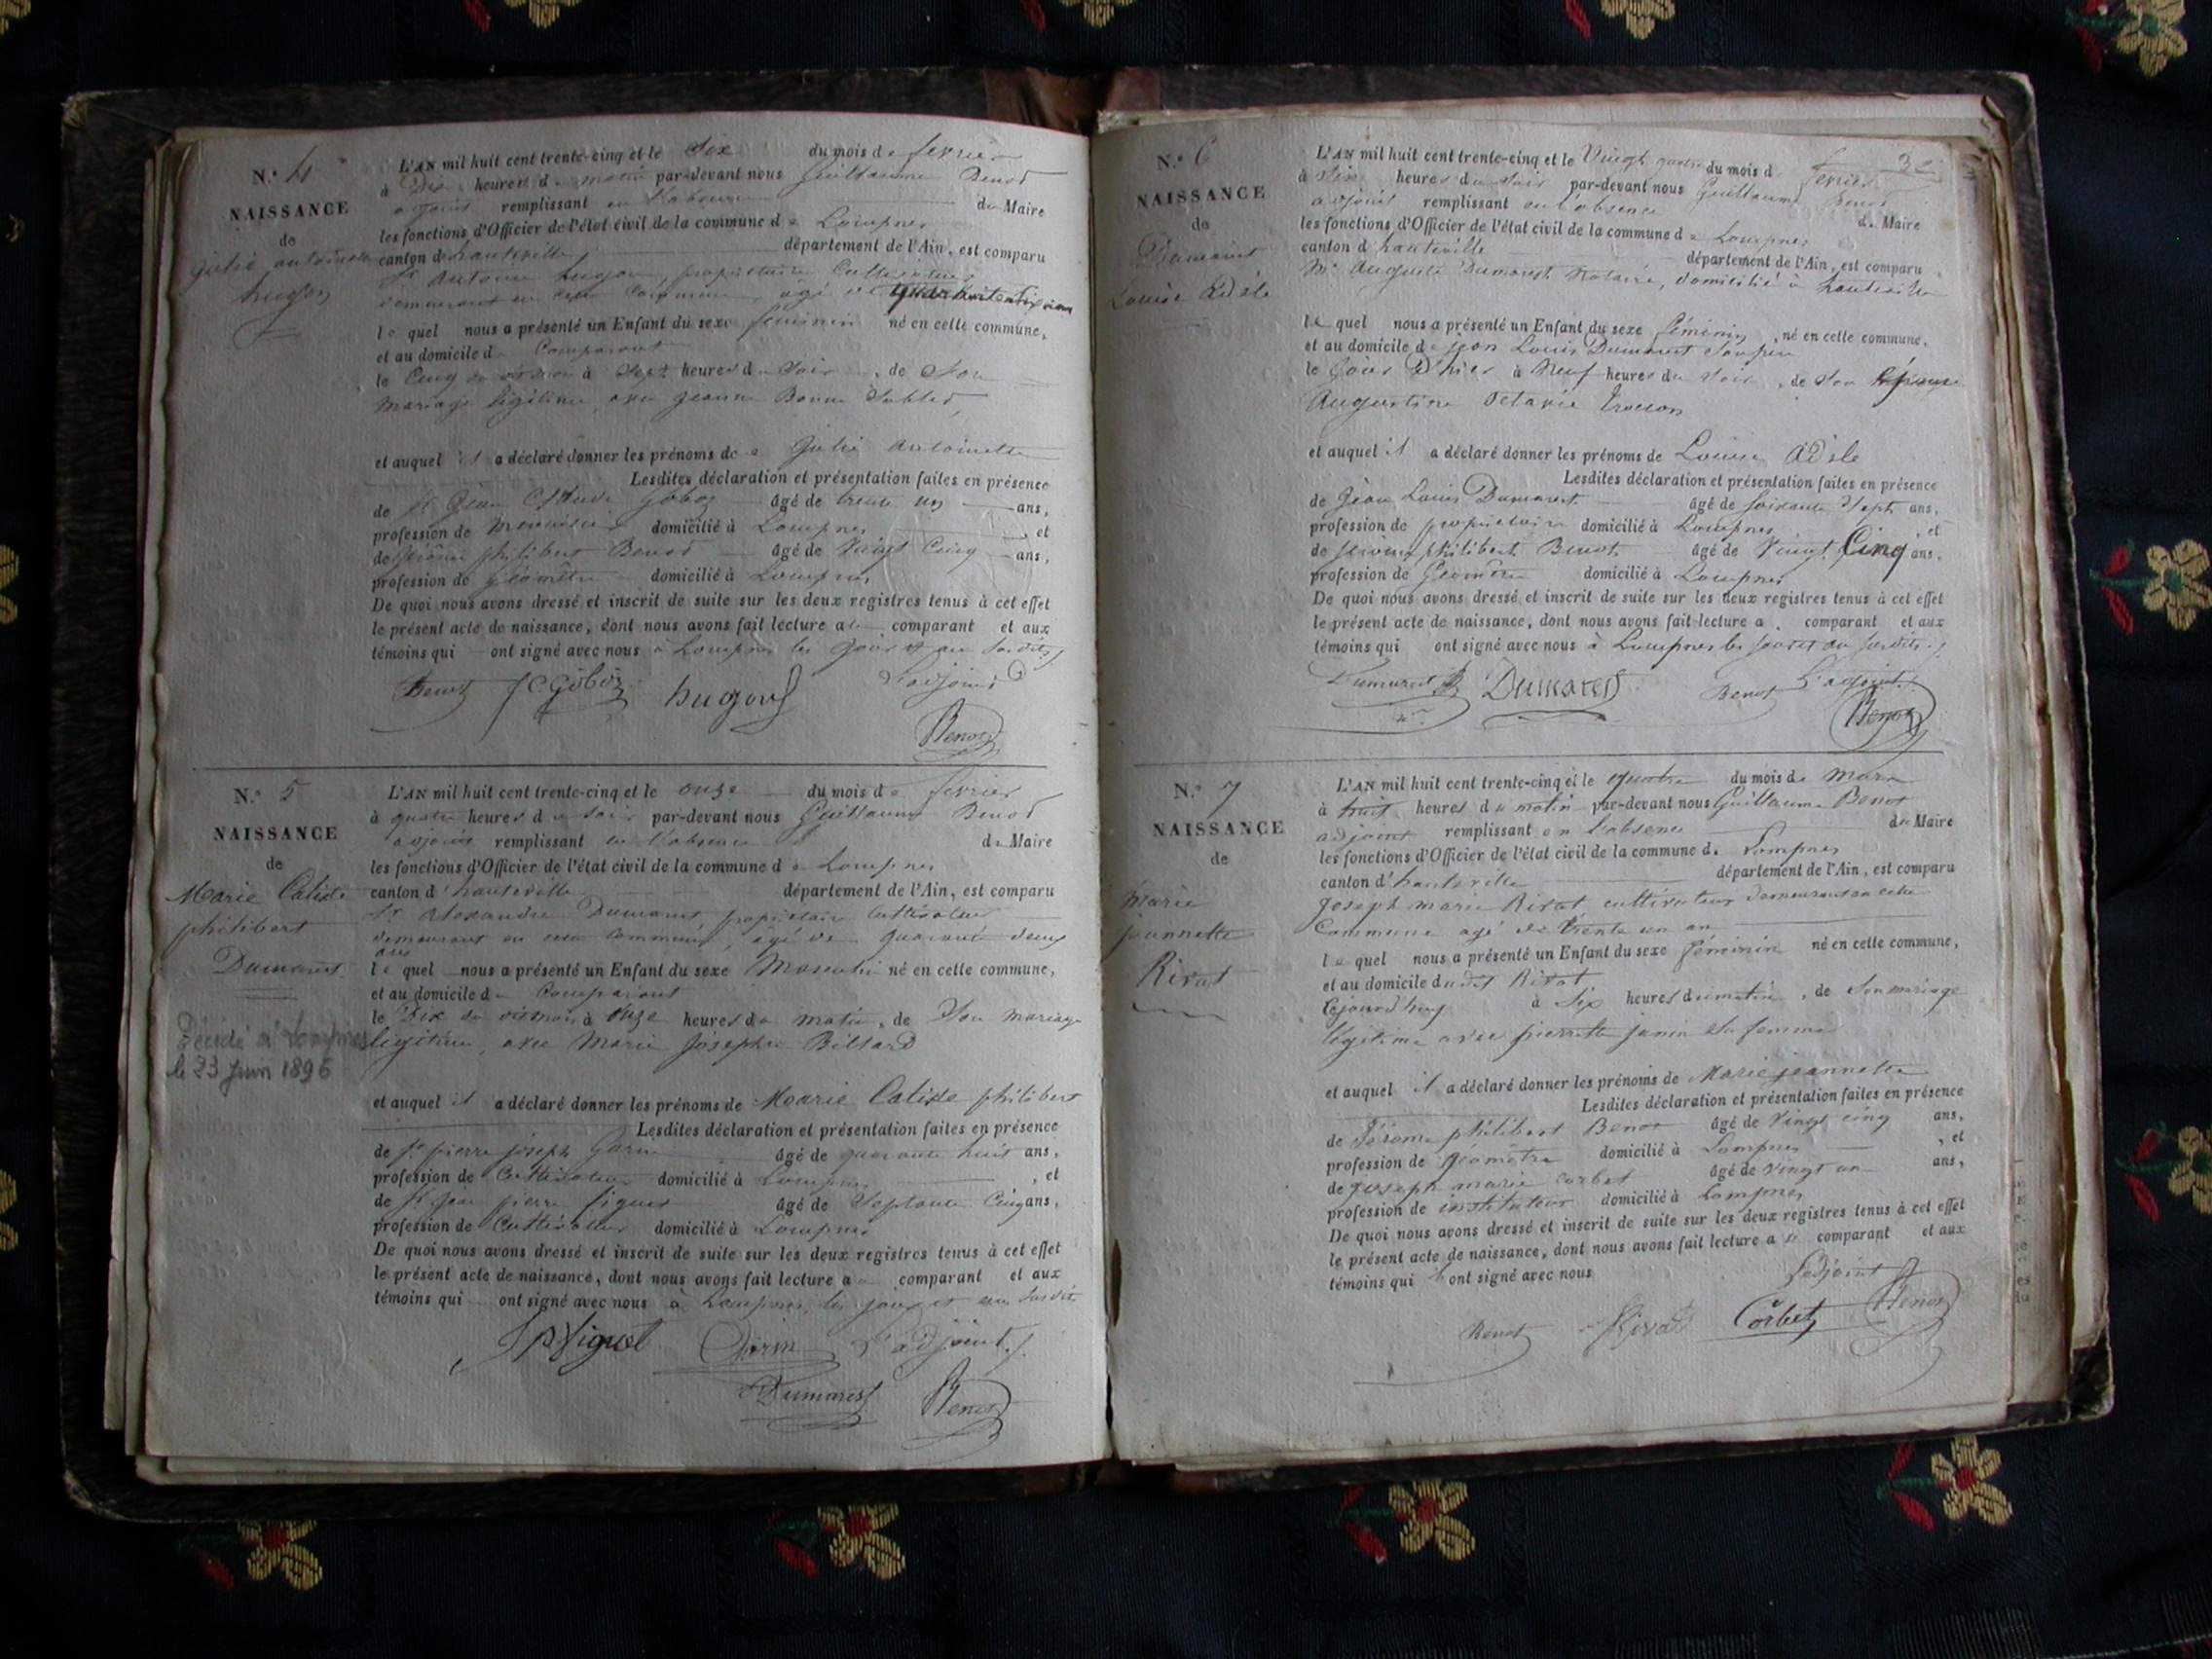 N.° 4
NAISSANCE
de
julie antoinette
hugon
L'AN mil huit cent trente-cinq et le Six du mois de fevrier
à Dix heures du matin par-devant nous Guillaume Benod
adjoint remplissant en l'absence du Maire
les fonctions d'Officier de l'état civil de la commune de Lompnes
canton d'hauteville département de l'Ain, est comparu
Sr antoine hugon, propriétaire Cultivateur
demeurant en cette Commune, âgé de
le quel nous a présenté un Enfant du sexe feminin né en cette commune,
et au domicile du Comparant
le Cinq du dit mois à Sept heures du Soir, de Son
mariage légitime, avec jeanne Bonne
et auquel il a déclaré donner les prénoms de Julie antoinette
Lesdites déclaration et présentation faites en présence
de Sr jean Claude Goboz âgé de trente un ans,
profession de Menuisier domicilié à Lompnes, et
de jérôme philibert Benod âgé de Vingt Cinq ans,
profession de géomètre domicilié à Lompnes
De quoi nous avons dressé et inscrit de suite sur les deux registres tenus à cet effet
le présent acte de naissance, dont nous avons fait lecture au comparant et aux
témoins qui ont signé avec nous à Lompnes les jour et an susdits
Benod JC Goboz hugon L'adjoint
Benod
N.° 5
NAISSANCE
de
Marie Calixte
philibert
Dumarest
Décédé à Lompnes
le 23 Juin 1896
L'AN mil huit cent trente-cinq et le onze du mois de fevrier
à quatre heures du Soir par-devant nous Guillaume Benod
adjoint remplissant en l'absence du Maire
les fonctions d'Officier de l'état civil de la commune de Lompnes
canton d'hauteville département de l'Ain, est comparu
Sr alexandre Dumarest propriétaire Cultivateur
demeurant en cette Commune, âgé de quarante deux
ans
le quel nous a présenté un Enfant du sexe Masculin né en cette commune,
et au domicile du Comparant
le Dix du dit mois à Onze heures du matin, de Son mariage
légitime, avec Marie Josephte Billard
et auquel il a déclaré donner les prénoms de Marie Calixte philibert
Lesdites déclaration et présentation faites en présence
de Sr pierre joseph Garin âgé de quarante huit ans,
profession de Cultivateur domicilié à Lompnes, et
de Sr jean pierre figuet âgé de Septante Cinq ans,
profession de Cultivateur domicilié à Lompnes
De quoi nous avons dressé et inscrit de suite sur les deux registres tenus à cet effet
le présent acte de naissance, dont nous avons fait lecture au comparant et aux
témoins qui ont signé avec nous à Lompnes, les jour et an susdits
Jp figuet Garin L'adjoint
Dumarest Benod
3
N.° 6
NAISSANCE
de
Dumarest
Louise Adèle
L'AN mil huit cent trente-cinq et le Vingt quatre du mois de fevrier
à Six heures du Soir par-devant nous Guillaume Benod
adjoint remplissant en l'absence du Maire
les fonctions d'Officier de l'état civil de la commune de Lompnes
canton d'hauteville département de l'Ain, est comparu
Mr Auguste Dumarest Notaire, domicilié à hauteville
le quel nous a présenté un Enfant du sexe féminin, né en cette commune,
et au domicile de jean Louis Dumarest son père
le jour D'hier à Neuf heures du Soir, de Son Épouse
Augustine Octavie
et auquel il a déclaré donner les prénoms de Louise Adèle
Lesdites déclaration et présentation faites en présence
de jean Louis Dumarest âgé de Soixante Sept ans,
profession de propriétaire domicilié à Lompnes, et
de jérôme philibert Benod âgé de Vingt Cinq ans,
profession de Géomètre domicilié à Lompnes
De quoi nous avons dressé et inscrit de suite sur les deux registres tenus à cet effet
le présent acte de naissance, dont nous avons fait lecture a comparant et aux
témoins qui ont signé avec nous à Lompnes les jour et an susdits
Dumarest Dumarest Benod L'adjoint
Benod
N.° 7
NAISSANCE
de
Marie
jeannette
Rivat
L'AN mil huit cent trente-cinq et le quatre du mois de Mars
à huit heures du matin par-devant nous Guillaume Benod
adjoint remplissant en l'absence du Maire
les fonctions d'Officier de l'état civil de la commune de Lompnes
canton d'hauteville département de l'Ain, est comparu
Joseph marie Rivat cultivateur demeurant en cette
Commune agé de trente un an
le quel nous a présenté un Enfant du sexe féminin né en cette commune,
et au domicile du dit Rivat
à Six heures du matin, de Son mariage
légitime avec pierrette janin sa femme
et auquel il a déclaré donner les prénoms de Marie jeannette
Lesdites déclaration et présentation faites en présence
de Jérome philibert Benod âgé de Vingt cinq ans,
profession de géometre domicilié à Lompnes, et
de joseph marie Corbet âgé de Vingt un ans,
profession de instituteur domicilié à Lompnes
De quoi nous avons dressé et inscrit de suite sur les deux registres tenus à cet effet
le présent acte de naissance, dont nous avons fait lecture au comparant et aux
témoins qui ont signé avec nous L'adjoint
Benod Rivat Corbet Benod